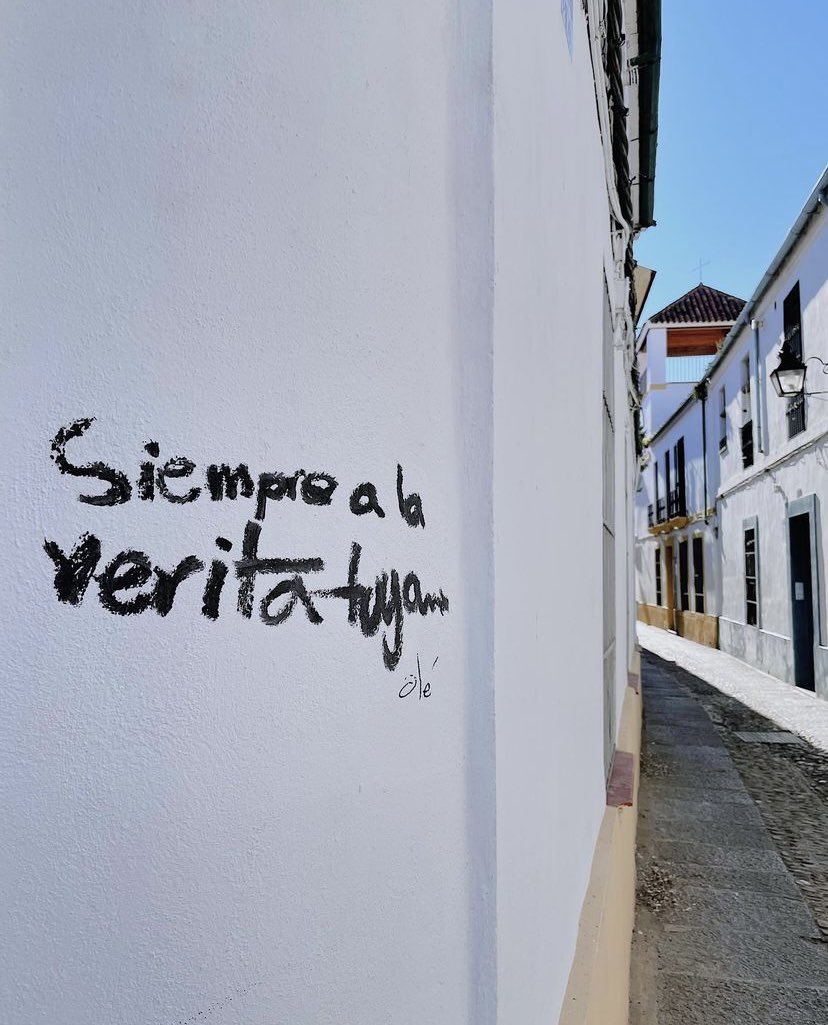 Siempre a la
verita tuya...
olé